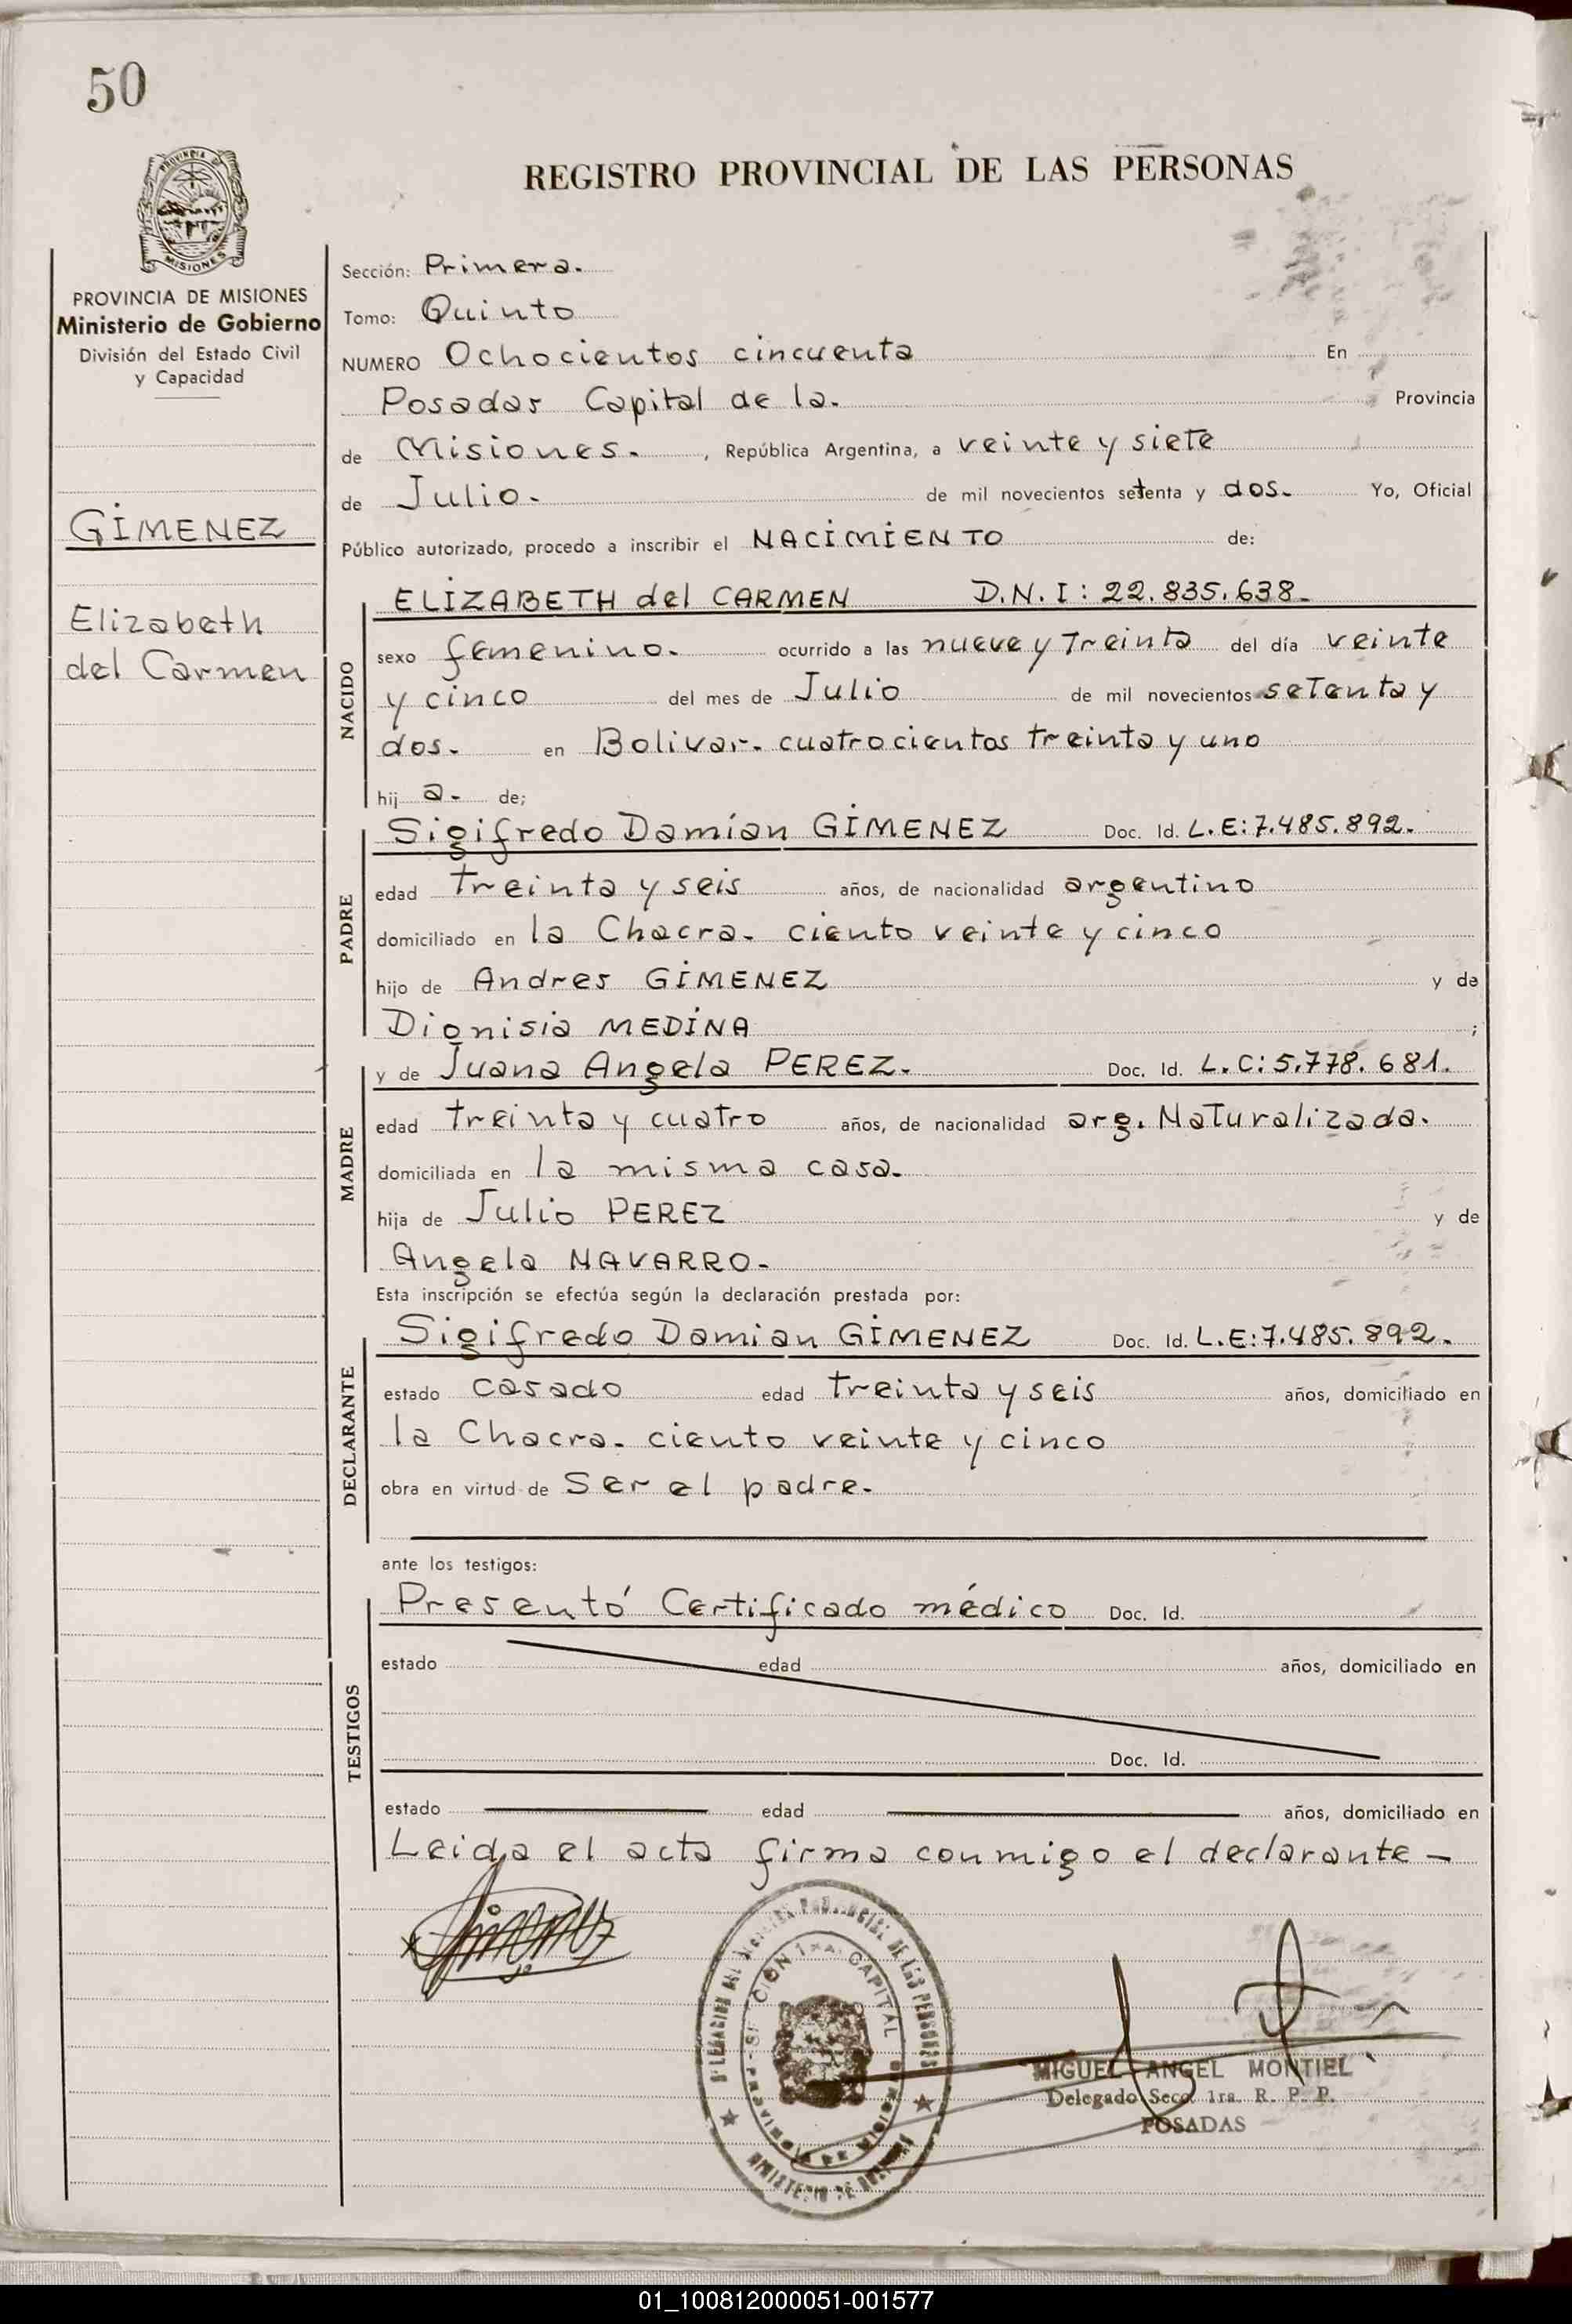 50
REGISTRO PROVINCIAL DE LAS PERSONAS
PROVINCIA DE MISIONES
PROVINCIA DE MISIONES
Ministerio de Gobierno
División del Estado Civil
y Capacidad
GIMENEZ
Elizabeth
del Carmen
Sección: Primera.
Tomo: Quinto
NUMERO Ochocientos cincuenta En
Posadas Capital de la. Provincia
de Misiones. , República Argentina, a veinte y siete
de Julio. de mil novecientos setenta y dos. Yo, Oficial
Público autorizado, procedo a inscribir el NACIMIENTO de:
NACIDO
ELIZABETH del CARMEN D.N.I: 22.835.638.
sexo femenino. ocurrido a las nueve y treinta del día veinte
y cinco del mes de Julio de mil novecientos setenta y
dos. en Bolivar. cuatrocientos treinta y uno
hij a. de;
PADRE
Sigifredo Damían GIMENEZ Doc. Id. L.E: 7.485.892.
edad treinta y seis años, de nacionalidad argentino
domiciliado en la Chacra. ciento veinte y cinco
hijo de Andres GIMENEZ y de
Dionisia MEDINA ;
MADRE
y de Juana Angela PEREZ. Doc. Id. L.C: 5.778.681.
edad treinta y cuatro años, de nacionalidad arg. Naturalizada.
domiciliada en la misma casa.
hija de Julio PEREZ y de
Angela NAVARRO.
Esta inscripción se efectúa según la declaración prestada por:
DECLARANTE
Sigifredo Damian GIMENEZ Doc. Id. L.E: 7.485.892.
estado casado edad treinta y seis años, domiciliado en
la Chacra. ciento veinte y cinco
obra en virtud de Ser el padre.
ante los testigos:
TESTIGOS
Presentó Certificado médico Doc. Id.
estado edad años, domiciliado en
Doc. Id.
estado edad años, domiciliado en
Leida el acta firma conmigo el declarante —
Gimenez
DELEGACION DEL REGISTRO PROVINCIAL DE LAS PERSONAS
SECCION 1ra. CAPITAL
PROVINCIA DE MISIONES
MINISTERIO DE GOBIERNO
MIGUEL ANGEL MONTIEL
Delegado Secc. 1ra. R. P. P.
POSADAS
01_100812000051-001577